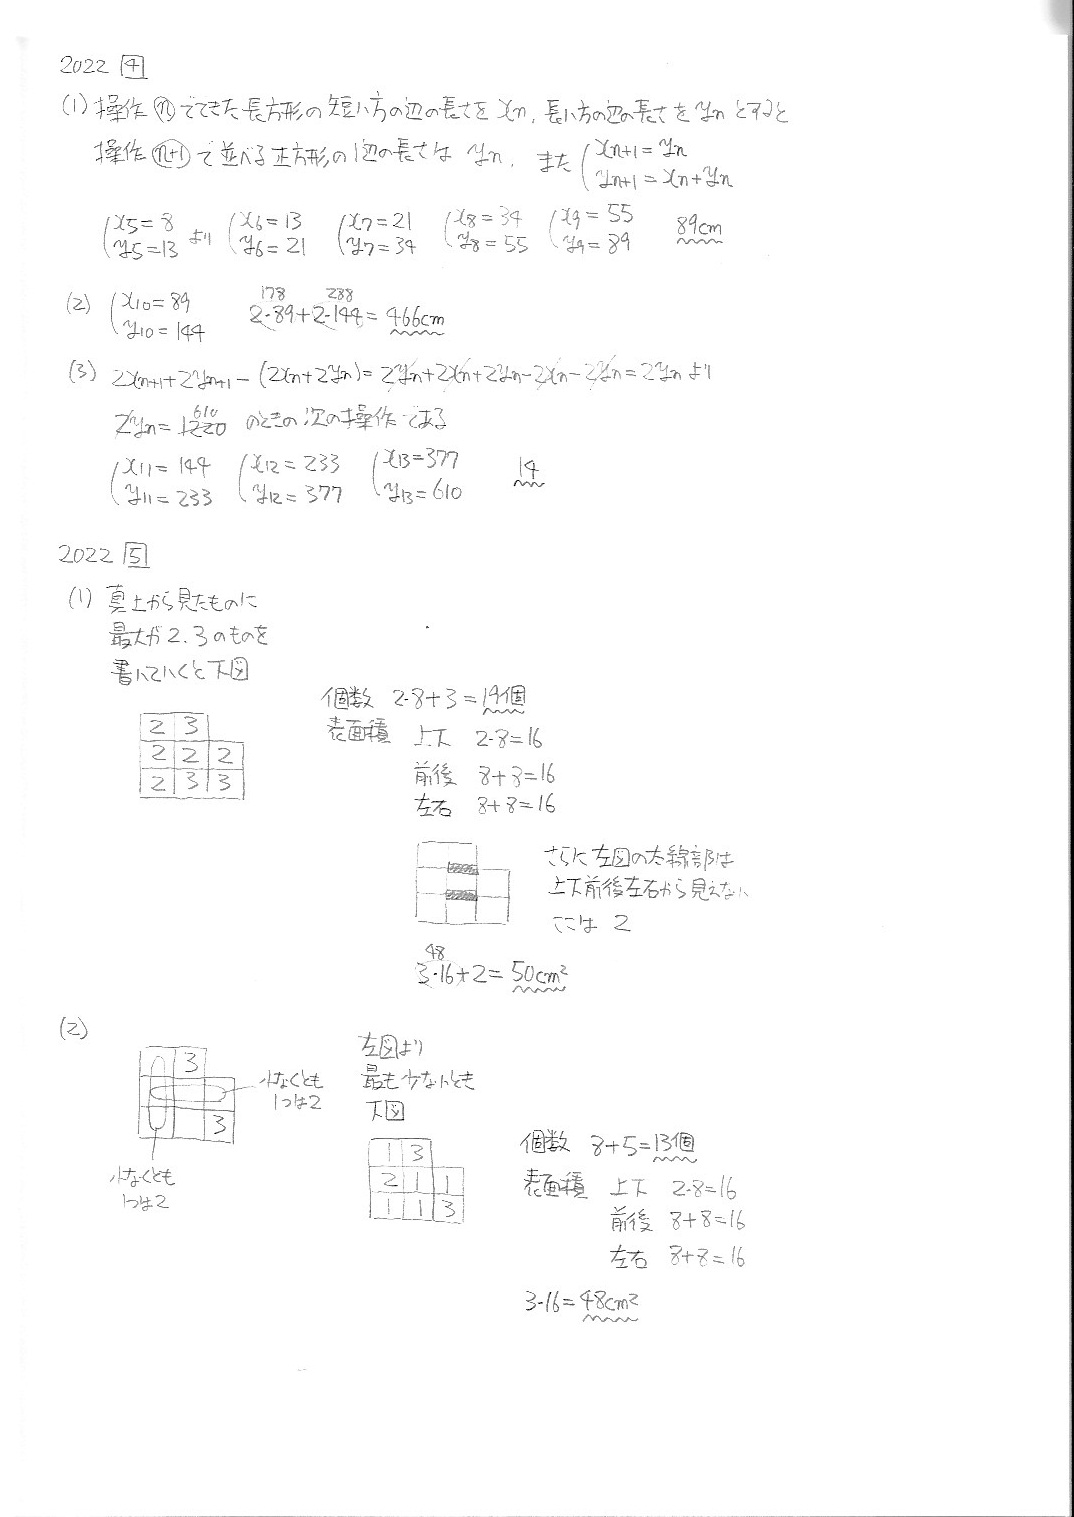 2022 4
(1) 操作 n でできた長方形の短い方の辺の長さをxn, 長い方の辺の長さをynとすると
操作 n+1 で並べる正方形の1辺の長さは yn. また (xn+1=yn
yn+1=xn+yn
(x5=8 y5=13 より (x6=13 y6=21 (x7=21 y7=34 (x8=34 y8=55 (x9=55 y9=89 89cm
(2) (x10=89 y10=144 178 288
2·89+2·144=466cm
(3) 2xn+1+2yn+1-(2xn+2yn)=2yn+2xn+2yn-2xn-2yn=2yn より
2yn=1220 610 のときの次の操作である
(x11=144 y11=233 (x12=233 y12=377 (x13=377 y13=610 14
2022 5
(1) 真上から見たものに
最大が2.3のものを
書いていくと下図
2 3
2 2 2
2 3 3
個数 2·8+3=19個
表面積 上下 2·8=16
前後 8+8=16
左右 8+8=16
さらに左図の太線部は
上下前後左右から見えない
ここは 2
48
3·16+2=50cm²
(2)
3
3
少なくとも
1つは2
少なくとも
1つは2
左図より
最も少ないとき
下図
1 3
2 1 1
1 1 3
個数 8+5=13個
表面積 上下 2·8=16
前後 8+8=16
左右 8+8=16
3·16=48cm²